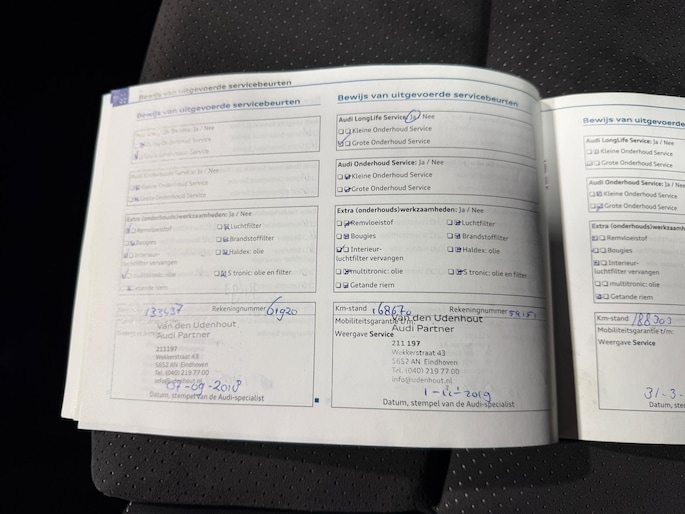 Bewijs van uitgevoerde servicebeurten
Bewijs van uitgevoerde servicebeurten
Grote Onderhoud Service
Audi Onderhoud Service: Ja / Nee
Kleine Onderhoud Service
Grote Onderhoud Service
Extra (onderhouds)werkzaamheden: Ja / Nee
Remvloeistof
Luchtfilter
Bougies
Brandstoffilter
Interieur-
luchtfilter vervangen
Haldex: olie
multitronic: olie
S tronic: olie en filter
Getande riem
133437
Rekeningnummer 61920
Van den Udenhout
Audi Partner
211 197
Wekkerstraat 43
5652 AN Eindhoven
Tel. (040) 219 77 00
info@udenhout.nl
07-09-2018
Datum, stempel van de Audi-specialist
Bewijs van uitgevoerde servicebeurten
Audi LongLife Service: Ja / Nee
Kleine Onderhoud Service
Grote Onderhoud Service
Audi Onderhoud Service: Ja / Nee
Kleine Onderhoud Service
Grote Onderhoud Service
Extra (onderhouds)werkzaamheden: Ja / Nee
Remvloeistof
Luchtfilter
Bougies
Brandstoffilter
Interieur-
luchtfilter vervangen
Haldex: olie
multitronic: olie
S tronic: olie en filter
Getande riem
Km-stand 168670
Rekeningnummer
Mobiliteitsgarantie t/m:
Weergave Service
Van den Udenhout
Audi Partner
211 197
Wekkerstraat 43
5652 AN Eindhoven
Tel. (040) 219 77 00
info@udenhout.nl
2019
Datum, stempel van de Audi-specialist
Bewijs van uitgevoerde
Audi LongLife Service: Ja
Kleine Onderhoud Service
Grote Onderhoud Service
Audi Onderhoud Service: Ja
Kleine Onderhoud Service
Grote Onderhoud Service
Extra (onderhouds)werkza
Remvloeistof
Bougies
Interieur-
luchtfilter vervangen
multitronic: olie
Getande riem
Km-stand 188303
Mobiliteitsgarantie t/m:
Weergave Service
31-3-
Datum, stem